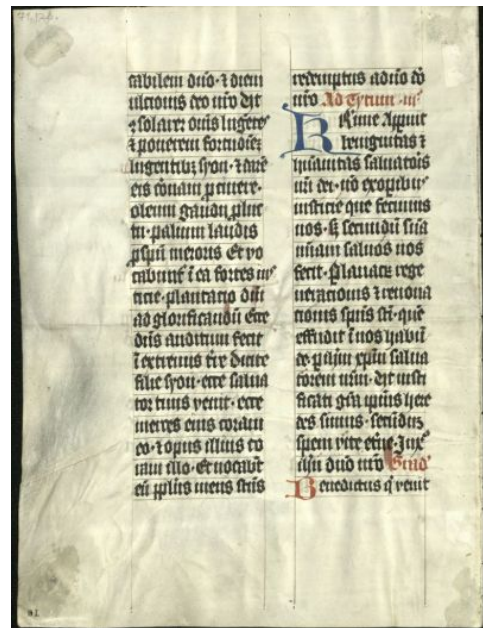 cabilem dno · ⁊ diem
ulcionis deo nro Ut
ꝯsolarer omīs lugētes
⁊ ponerem fortitudiēȝ
lugentibȝ syon · ⁊ darē
eis coronam p cinere ·
oleum gaudij p luc
tu · palium laudis
p spū meroris Et vo
cabunt̄ ī ea fortes ius
ticie · plantacio dni
ad glorificandū Ecce
dns auditum fecit
ī extremis tr̄e Dicite
filie syon · ecce salua
tor tuus venit · ecce
merces eius coram
eo · ⁊ opus illius co
ram illo · Et uocabūt
eū pplus meus scūs
redemptus a dno do
nro Ad Tytum
Kme Apparuit
benignitas ⁊
hūanitas saluatoris
nri dei · nō ex opibus
iusticie que fecimus
nos · sꝫ secundū suā
mīam saluos nos
fecit · P lauacꝝ rege
neracionis ⁊ renoua
cionis spūs sci · quē
effudit ī nos habūn
de p ihm xpm salua
torem nrm · Ut iusti
ficati gr̄a ipius here
des simus · secūdum
spem vite etne · In xpo
ihu dno nro Grad
Benedictus q venit